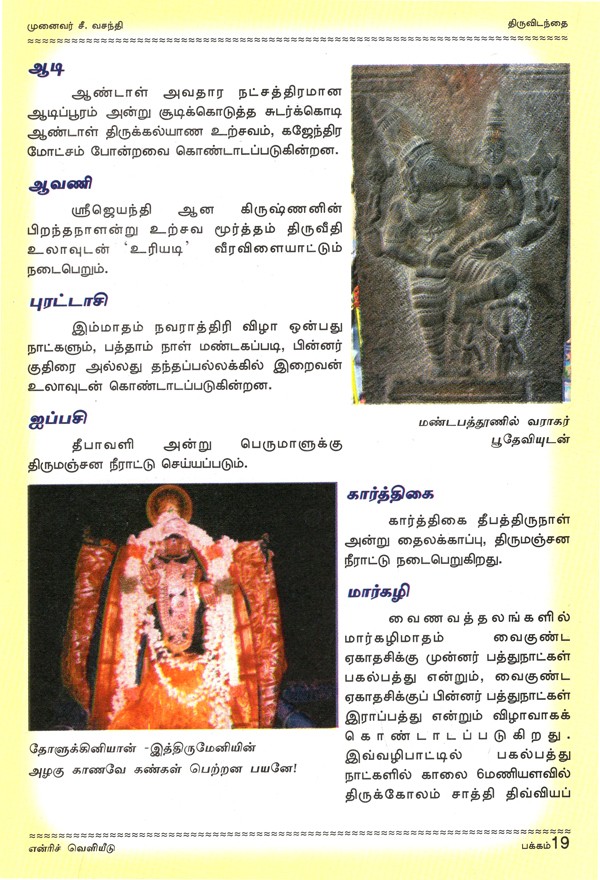 முனைவர் சீ. வசந்தி
திருவிடந்தை
ஆடி
ஆண்டாள் அவதார நட்சத்திரமான
ஆடிப்பூரம் அன்று சூடிக்கொடுத்த சுடர்க்கொடி
ஆண்டாள் திருக்கல்யாண உற்சவம், கஜேந்திர
மோட்சம் போன்றவை கொண்டாடப்படுகின்றன.
ஆவணி
ஸ்ரீஜெயந்தி ஆன கிருஷ்ணனின்
பிறந்தநாளன்று உற்சவ மூர்த்தம் திருவீதி
உலாவுடன் ‘உரியடி’ வீரவிளையாட்டும்
நடைபெறும்.
புரட்டாசி
இம்மாதம் நவராத்திரி விழா ஒன்பது
நாட்களும், பத்தாம் நாள் மண்டகப்படி, பின்னர்
குதிரை அல்லது தந்தப்பல்லக்கில் இறைவன்
உலாவுடன் கொண்டாடப்படுகின்றன.
ஐப்பசி
தீபாவளி அன்று பெருமாளுக்கு
திருமஞ்சன நீராட்டு செய்யப்படும்.
மண்டபத்தூணில் வராகர்
பூதேவியுடன்
தோளுக்கினியான் -இத்திருமேனியின்
அழகு காணவே கண்கள் பெற்றன பயனே!
கார்த்திகை
கார்த்திகை தீபத்திருநாள்
அன்று தைலக்காப்பு, திருமஞ்சன
நீராட்டு நடைபெறுகிறது.
மார்கழி
வைணவத்தலங்களில்
மார்கழிமாதம் வைகுண்ட
ஏகாதசிக்கு முன்னர் பத்துநாட்கள்
பகல்பத்து என்றும், வைகுண்ட
ஏகாதசிக்குப் பின்னர் பத்துநாட்கள்
இராப்பத்து என்றும் விழாவாகக்
கொண்டாடப்படுகிறது.
இவ்வழிபாட்டில் பகல்பத்து
நாட்களில் காலை 6மணியளவில்
திருக்கோலம் சாத்தி திவ்வியப்
என்ரிச் வெளியீடு
பக்கம்19